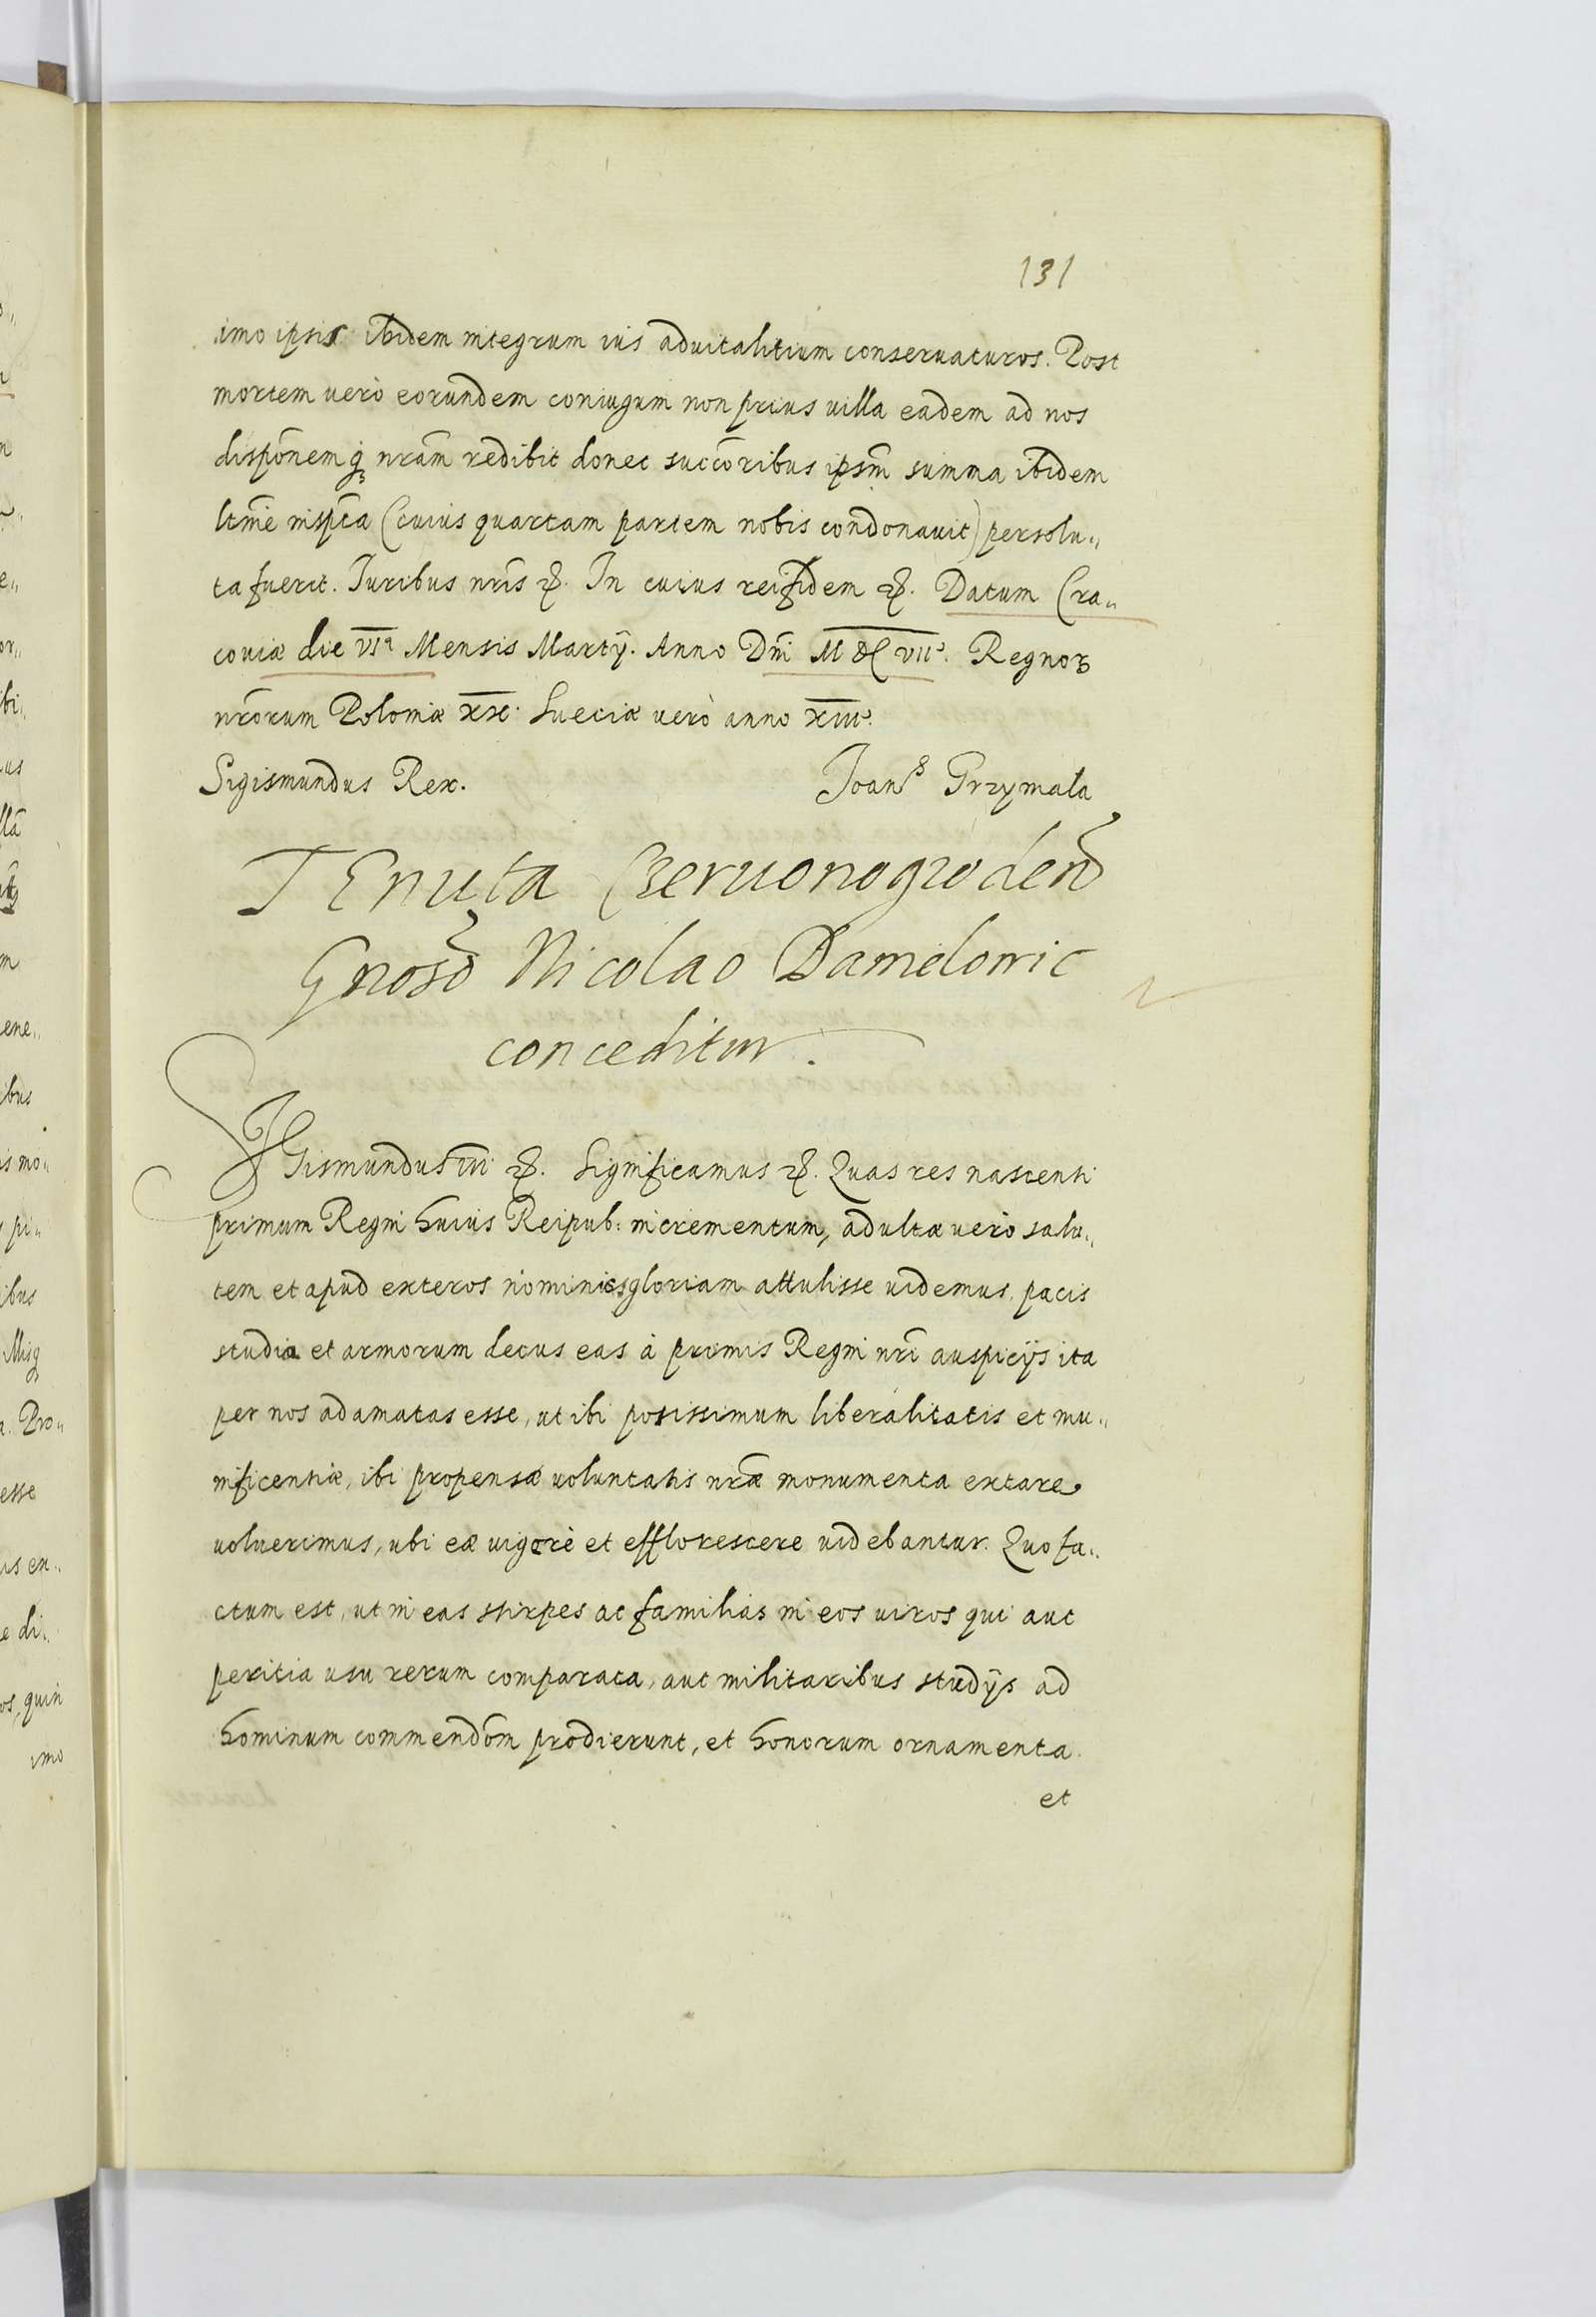 131
imo ipsis ibidem integrum ius aduitalitium conseruaturos. Post
mortem uerò eorundem coniugum non prius uilla eadem ad nos
dispōnemq́ʒ nrām redibit donec succōribus ipsm̄ summa ibidem
ltīme inspc̄ta (cuius quartam partem nobis condonauit) persolu„
ta fuerit. Iuribus nrīs ⁊c. In cuius rei fidem ⁊c. Datum Cra„
couiæ die VIª Mensis Martÿ. Anno Dnī M DC VIIº. Regnoꝝ
nrōrum Poloniæ XX. Sueciæ uerò anno XIIIº.
Sigismundus Rex. Joanˢ Grzymala
TEnuta Czeruonogroden̄
Gnosō Nicolao Danielowic
conceditur.
SIGismundus III ⁊c. Significamus ⁊c. Quas res nascenti
primum Regni huius Reipub: incrementum, adultæ uerò salu„
tem et apud exteros nominis gloriam attulisse uidemus, pacis
studia et armorum decus eas à primis Regni nrī auspicÿs ita
per nos adamatas esse, ut ibi potissimum liberalitatis et mu„
nificentiæ, ibi propensæ uoluntatis nrǣ monumenta extare
uoluerimus, ubi eæ uigere et efflorescere uidebantur. Quo fa„
ctum est, ut in eas stirpes ac familias in eos uiros qui aut
peritia usu rerum comparata, aut militaribus studÿs ad
hominum commendōm prodierunt, et honorum ornamenta
et